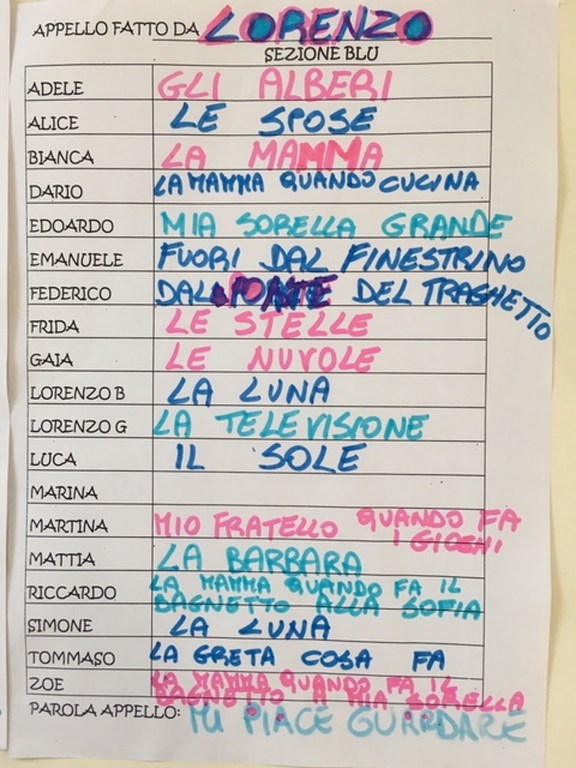 APPELLO FATTO DA LORENZO
SEZIONE BLU
ADELE GLI ALBERI
ALICE LE SPOSE
BIANCA LA MAMMA
DARIO LA MAMMA QUANDO CUCINA
EDOARDO MIA SORELLA GRANDE
EMANUELE FUORI DAL FINESTRINO
FEDERICO DAL PONTE DEL TRAGHETTO
FRIDA LE STELLE
GAIA LE NUVOLE
LORENZO B LA LUNA
LORENZO G LA TELEVISIONE
LUCA IL SOLE
MARINA
MARTINA MIO FRATELLO QUANDO FA
I GIOCHI
MATTIA LA BARBARA
RICCARDO LA MAMMA QUANDO FA IL
BAGNETTO ALLA SOFIA
SIMONE LA LUNA
TOMMASO LA GRETA COSA FA
ZOE LA MAMMA QUANDO FA IL
BAGNETTO A MIA SORELLA
PAROLA APPELLO: MI PIACE GUARDARE